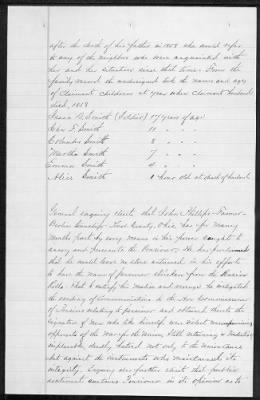 after the death of his father in 1858 who must refer
to any of the neighbors who were acquainted with
her and her situation since that time. From the
family record the undersigned took the names and ages
of Claimant children at year when Claimant husband
died, 1858
Isaac B. Smith (Soldier) 17 years of age
F. Smith 11 " "
Columbus Smith 8 " "
Martha Smith 7 " "
Emma Smith 4 " "
Alice Smith 1 hour old at death of husband
General enquiry elicits that John Phillips - Farmer
County, Ohio, has for many
months past by every means in his power sought to
annoy and persecute the Pensioner. He has proclaimed
that he would leave no stone unturned in his efforts
to have the name of pensioner stricken from the Pension
Rolls. That to satisfy his malice and revenge he instigated
the sending of Communications to the Hon Commissioner
of Pensions relating to pensioner and obtained thereto the
signatures of men who like himself were violent
opponents of the war for the Union still retaining
implacable deadly hatred not only to the
but against the instruments who maintained its
integrity. Enquiry also further elicits that public
sentiment sustains Pensioner in its opinion as to